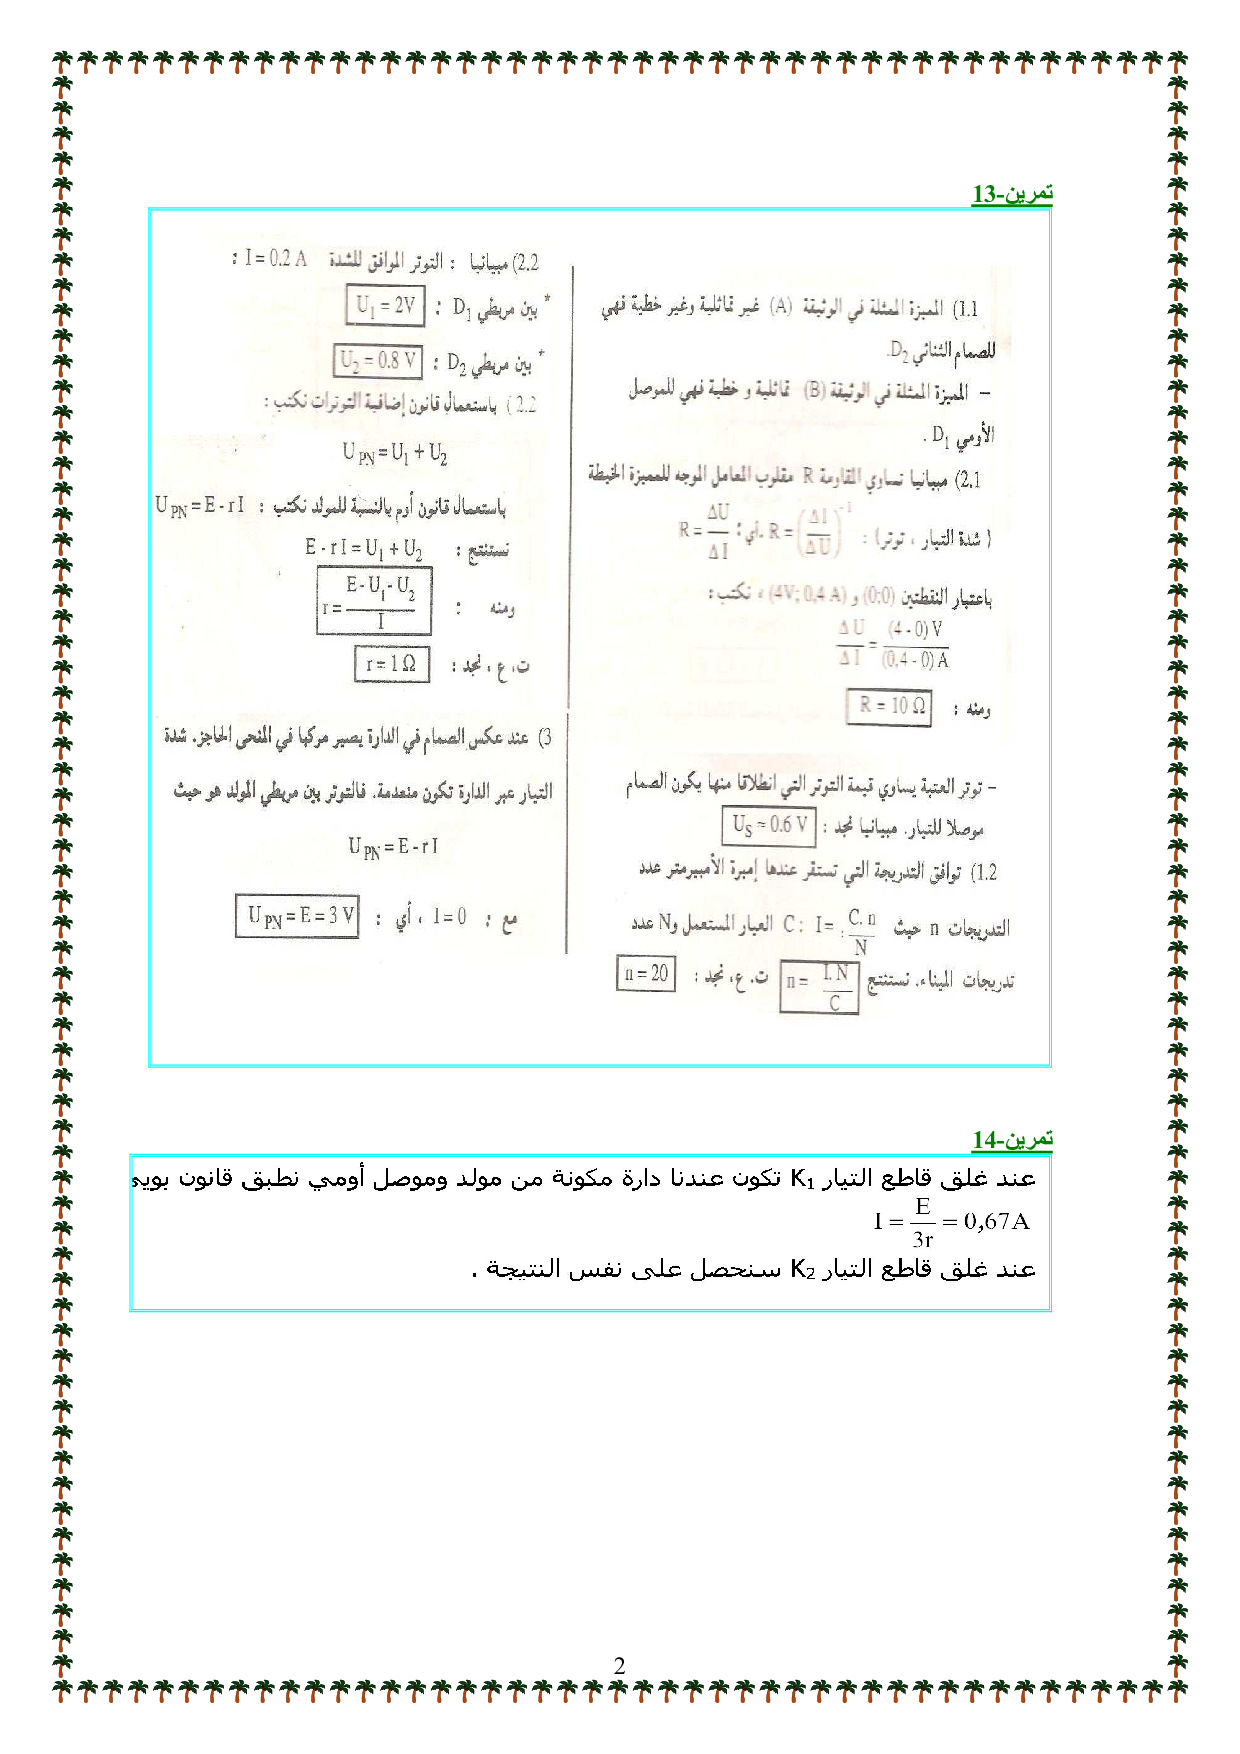 تمرين-13
1.1) المميزة الممثلة في الوثيقة (A) غير تماثلية وغير خطية فهي
للصمام الثنائي D₂.
– المميزة الممثلة في الوثيقة (B) تماثلية و خطية فهي للموصل
الأومي D₁ .
2.1) مبيانيا تساوي المقاومة R مقلوب المعامل الموجه للمميزة الخيطة
( شدة التيار ، توتر) : R = (ΔI/ΔU)⁻¹ .أي: R = ΔU/ΔI
باعتبار النقطتين (0;0) و (4V; 0,4 A) ، نكتب :
ΔU/ΔI = (4 - 0) V/(0,4 - 0) A
ومنه : R = 10 Ω
– توتر العتبة يساوي قيمة التوتر التي انطلاقا منها يكون الصمام
موصلا للتيار. مبيانيا نجد : U_S = 0.6 V
1.2) توافق التدريجة التي تستقر عندها إمبرة الأمبيرمتر عدد
التدريجات n حيث I = C.n/N : C العيار المستعمل وN عدد
تدريجات الميناء. نستنتج n = I.N/C ت. ع. نجد : n = 20
2.2) مبيانيا : التوتر الموافق للشدة I = 0.2 A :
* بين مربطي D₁ : U₁ = 2V
* بين مربطي D₂ : U₂ = 0.8 V
2.2 ) باستعمال قانون إضافية التوترات نكتب :
U_PN = U₁ + U₂
باستعمال قانون أوم بالنسبة للمولد نكتب : U_PN = E - rI
نستنتج : E - rI = U₁ + U₂
ومنه : r = (E - U₁ - U₂)/I
ت. ع ، نجد : r = 1 Ω
3) عند عكس الصمام في الدارة يصير مركبا في المنحى الحاجز. شدة
التيار عبر الدارة تكون منعدمة. فالتوتر بين مربطي المولد هو حيث
U_PN = E - rI
مع : I = 0 ، أي : U_PN = E = 3 V
تمرين-14
عند غلق قاطع التيار K₁ تكون عندنا دارة مكونة من مولد وموصل أومي نطبق قانون بويي
I = E/3r = 0,67A
عند غلق قاطع التيار K₂ سنحصل على نفس النتيجة .
2